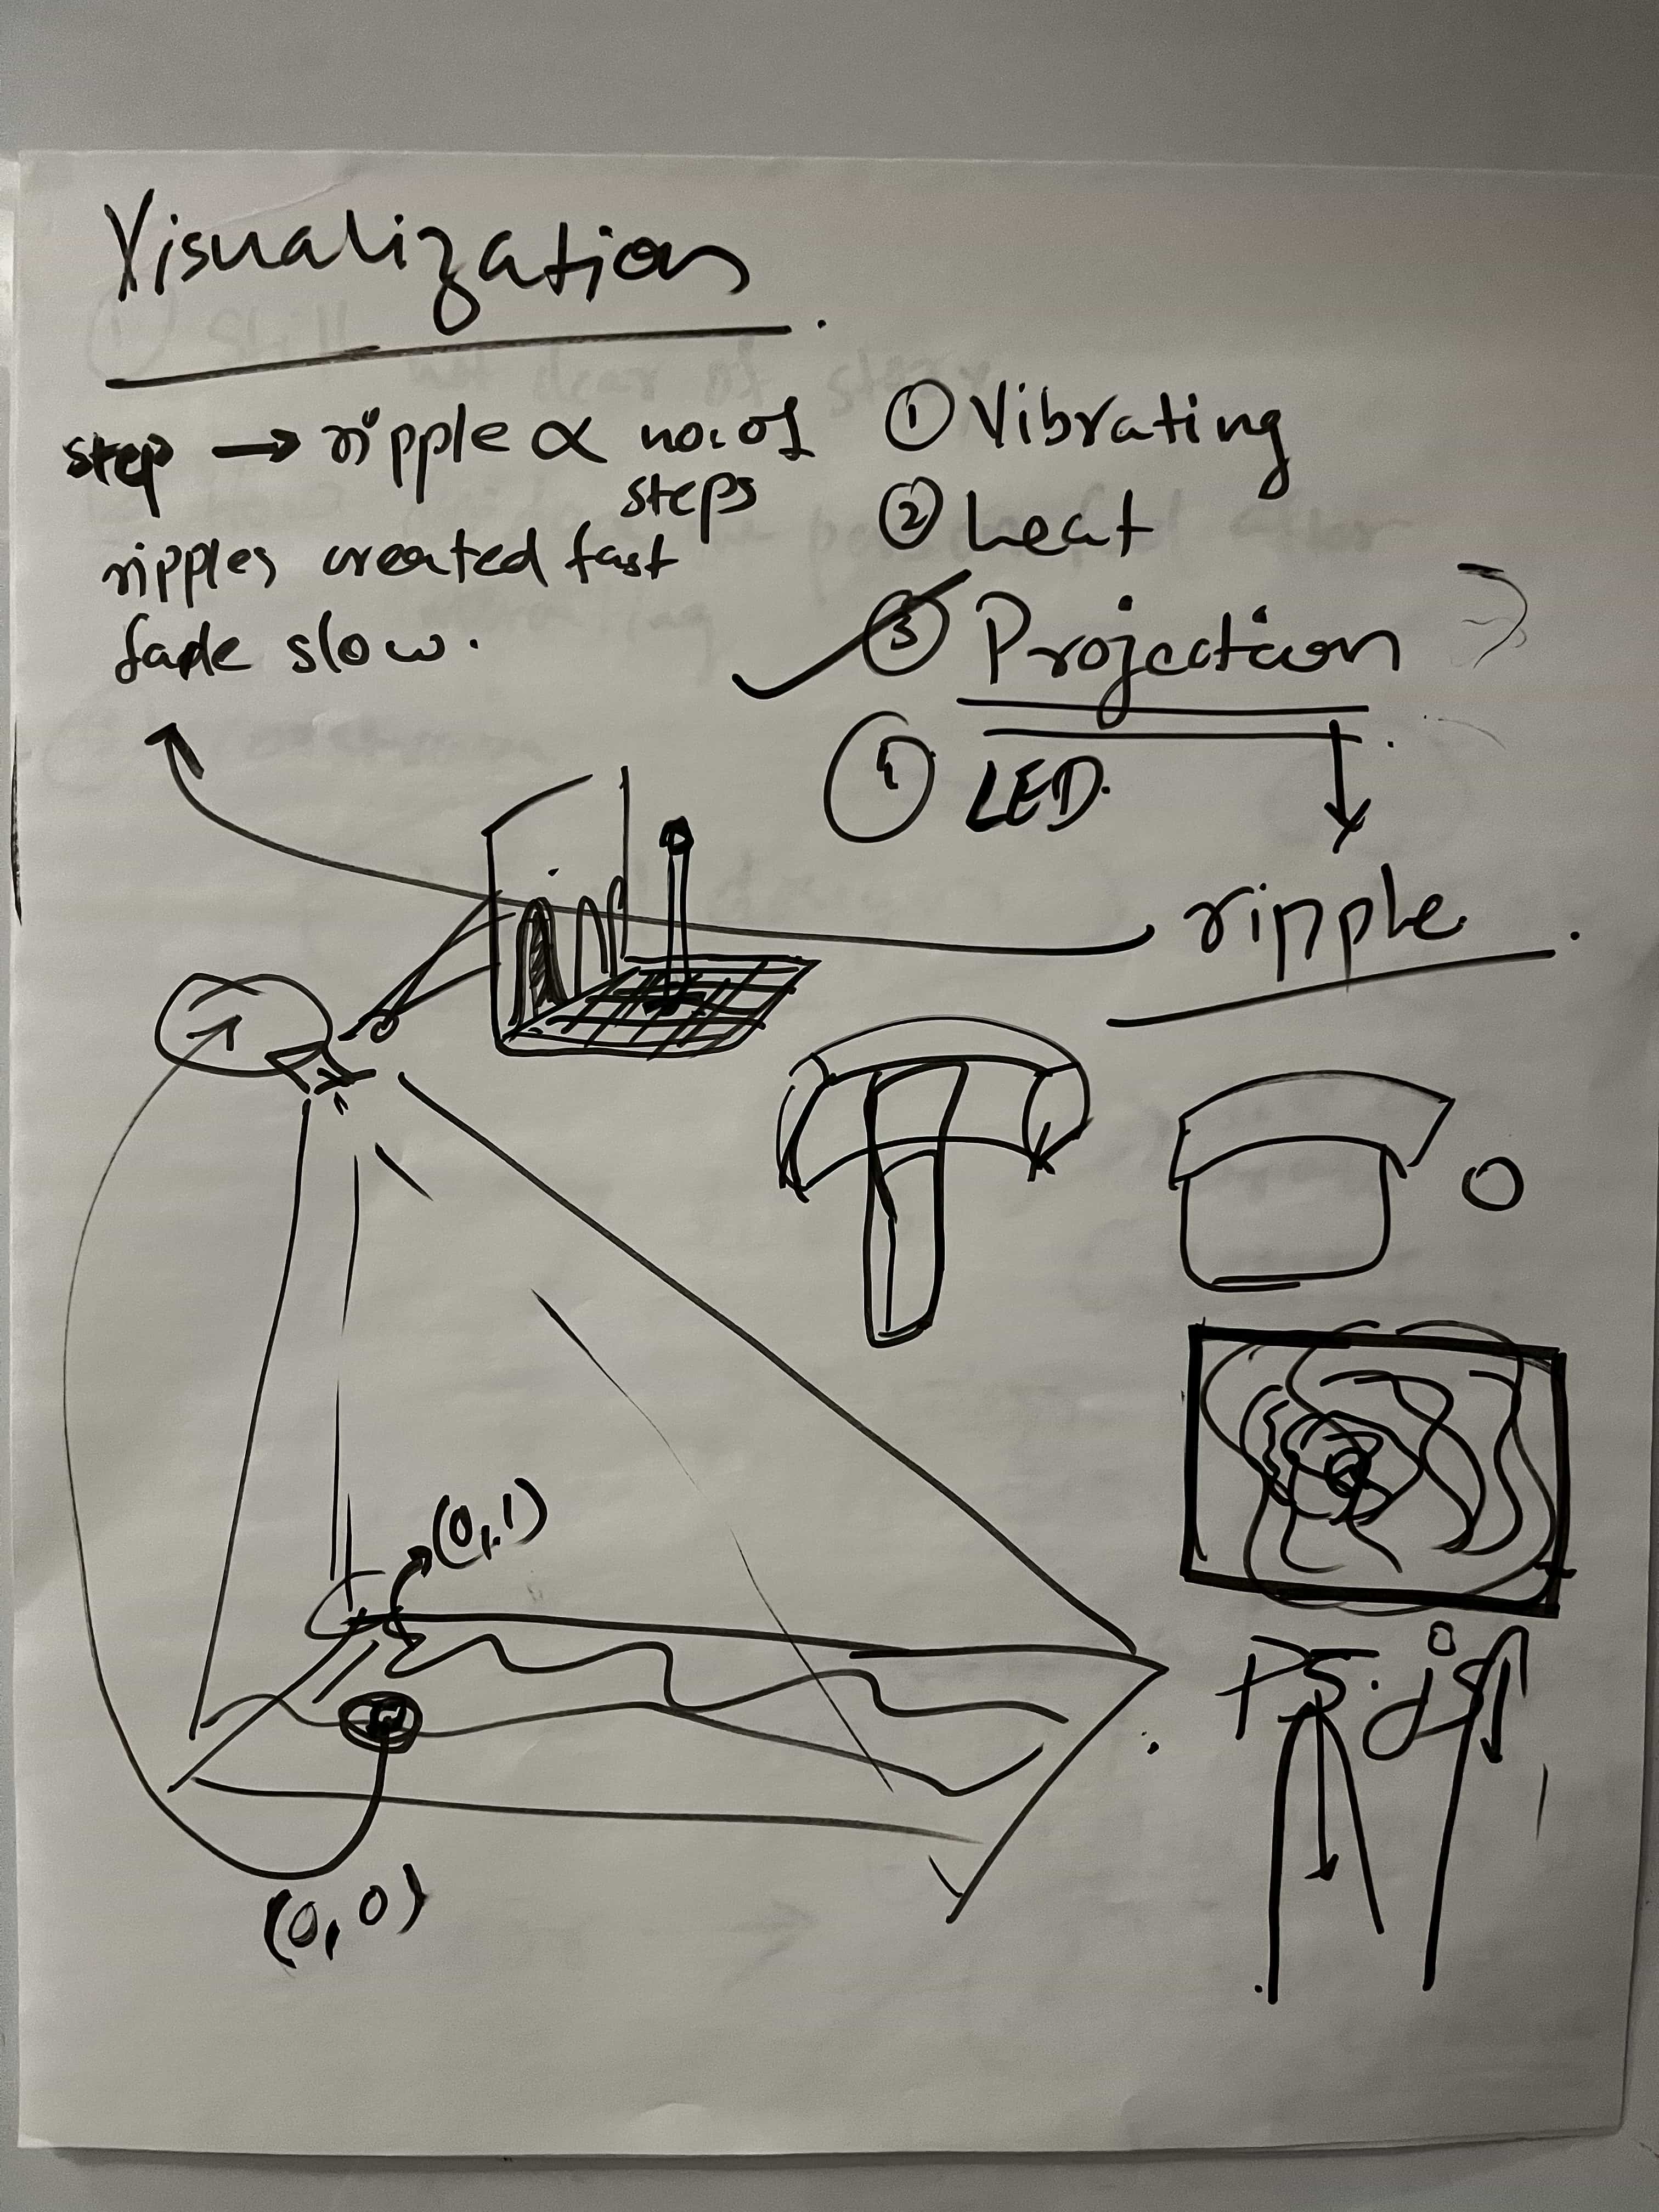 Visualization
step → ripple ∝ no. of
steps
ripples created fast
fade slow.
① Vibrating
② heat
③ Projection
④ LED.
ripple
(0,1)
(0,0)
P5.js